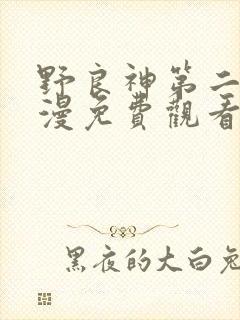 野良神第二
漫免費觀看
黑夜的大白兔